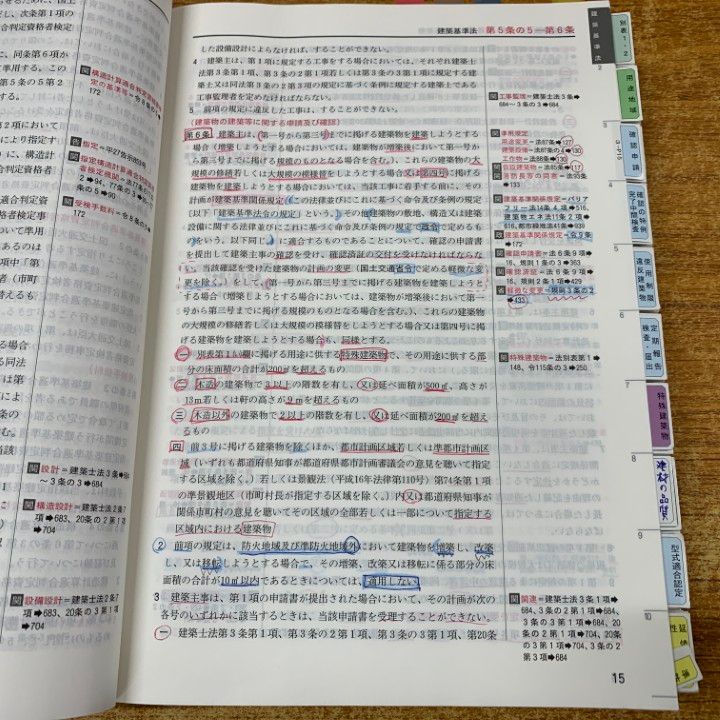 建築基準法 第5条の5―第6条
した設備設計によらなければ、することができない。
4 建築主は、第1項に規定する工事をする場合においては、それぞれ建築士
法第3条第1項、第3条の2第1項若しくは第3条の3第1項に規定する建
築士又は同法第3条の2第3項の規定に基づく条例に規定する建築士である
工事監理者を定めなければならない。
5 前項の規定に違反した工事は、することができない。
(建築物の建築等に関する申請及び確認)
第6条 建築主は、第一号から第三号までに掲げる建築物を建築しようとする
場合(増築しようとする場合においては、建築物が増築後において第一号か
ら第三号までに掲げる規模のものとなる場合を含む。)、これらの建築物の大
規模の修繕若しくは大規模の模様替をしようとする場合又は第四号に掲げる
建築物を建築しようとする場合においては、当該工事に着手する前に、その
計画が建築基準関係規定(この法律並びにこれに基づく命令及び条例の規定
(以下「建築基準法令の規定」という。)その他建築物の敷地、構造又は建築
設備に関する法律並びにこれに基づく命令及び条例の規定で政令で定めるも
のをいう。以下同じ。)に適合するものであることについて、確認の申請書
を提出して建築主事の確認を受け、確認済証の交付を受けなければならな
い。当該確認を受けた建築物の計画の変更(国土交通省令で定める軽微な変
更を除く。)をして、第一号から第三号までに掲げる建築物を建築しようと
する場合(増築しようとする場合においては、建築物が増築後において第一
号から第三号までに掲げる規模のものとなる場合を含む。)、これらの建築物
の大規模の修繕若しくは大規模の模様替をしようとする場合又は第四号に掲
げる建築物を建築しようとする場合も、同様とする。
一 別表第1(い)欄に掲げる用途に供する特殊建築物で、その用途に供する部
分の床面積の合計が200㎡を超えるもの
二 木造の建築物で3以上の階数を有し、又は延べ面積が500㎡、高さが
13m若しくは軒の高さが9mを超えるもの
三 木造以外の建築物で2以上の階数を有し、又は延べ面積が200㎡を超え
るもの
四 前3号に掲げる建築物を除くほか、都市計画区域若しくは準都市計画区
域(いずれも都道府県知事が都道府県都市計画審議会の意見を聴いて指定
する区域を除く。)若しくは景観法(平成16年法律第110号)第74条第1項
の準景観地区(市町村長が指定する区域を除く。)内又は都道府県知事が
関係市町村の意見を聴いてその区域の全部若しくは一部について指定する
区域内における建築物
2 前項の規定は、防火地域及び準防火地域外において建築物を増築し、改築
し、又は移転しようとする場合で、その増築、改築又は移転に係る部分の床
面積の合計が10㎡以内であるときについては、適用しない。
3 建築主事は、第1項の申請書が提出された場合において、その計画が次の
各号のいずれかに該当するときは、当該申請書を受理することができない。
一 建築士法第3条第1項、第3条の2第1項、第3条の3第1項、第20条
関 工事監理=建築士法3条➡
684~3条の3➡684
関 準用規定
用途変更=法87条➡127
建築設備=法87条の4➡130
工作物=法88条➡130
関 仮設建築物=法85条➡117
関 消防長等の同意=法93条
➡133
関 建築基準関係規定=バリア
フリー法14条4項➡
建築物エネ法11条2項➡
616、都市緑地法41条➡938
政 建築基準関係規定=令9条
➡172
関 確認申請書=法6条9項➡
16、規則1条の3➡363
関 確認済証=法6条9項➡
16、規則2条1項➡429
省 軽微な変更=規則3条の2
➡433
関 特殊建築物=法別表第1➡
148、令115条の3➡250
関 関連=建築士法3条1項➡
684、3条の2第1項➡684、
3条の3第1項➡684、20
条の2第1項➡704、20条
の3第1項➡704、3条の2
第3項➡684
15
建築基準法
別表1・2
用途地域
確認申請
確認の特例
完了中間検査
使用制限
違反建築物
定期報告
検査・届出
特殊建築物
建材の品質
型式適合認定
2
3
4
5
6
7
8
9
10
関 構造計算適合性判定
172
省 指定=平27告示
関 受検手数料=令
172
関 設計=建築士法2条➡
~3条の3➡684
関 構造設計=建築士法2条7
項➡683、20条の2第1項
➡704
関 設備設計=建築士法2条7
項➡683、20条の3第1項
➡704